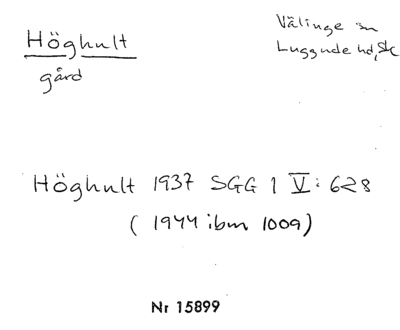 Höghult
gård
Välinge sn
Luggude hd, Sk
Höghult 1937 SGG 1 V: 628
(1944 ibm 1009)
Nr 15899